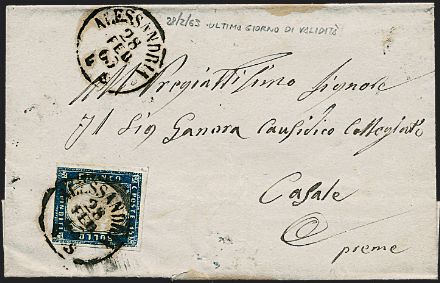 ALESSANDRIA
28
FEB
63
28/2/63 - ULTIMO GIORNO DI VALIDITÀ
Al Pregiattissimo Signore
Il Sig Ganora Causidico Collegiato
Casale
preme
ALESSANDRIA
28
FEB